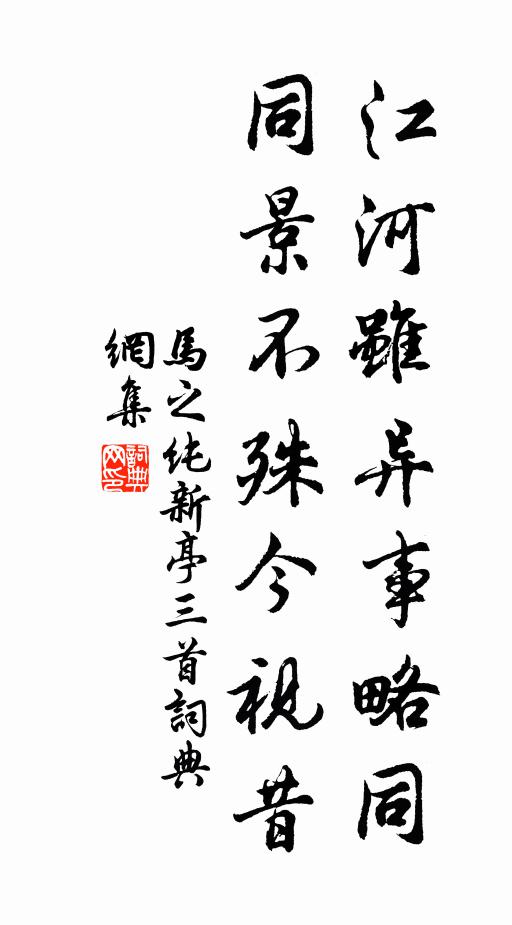 江河雖异事略同
同景不殊今視昔
馬之纯新亭三首詞典
網集
詞典
网印